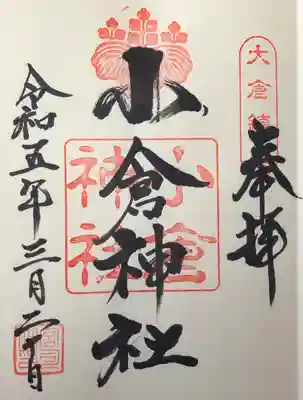 奉拝
小倉神社
小倉神社
令和五年三月二十日